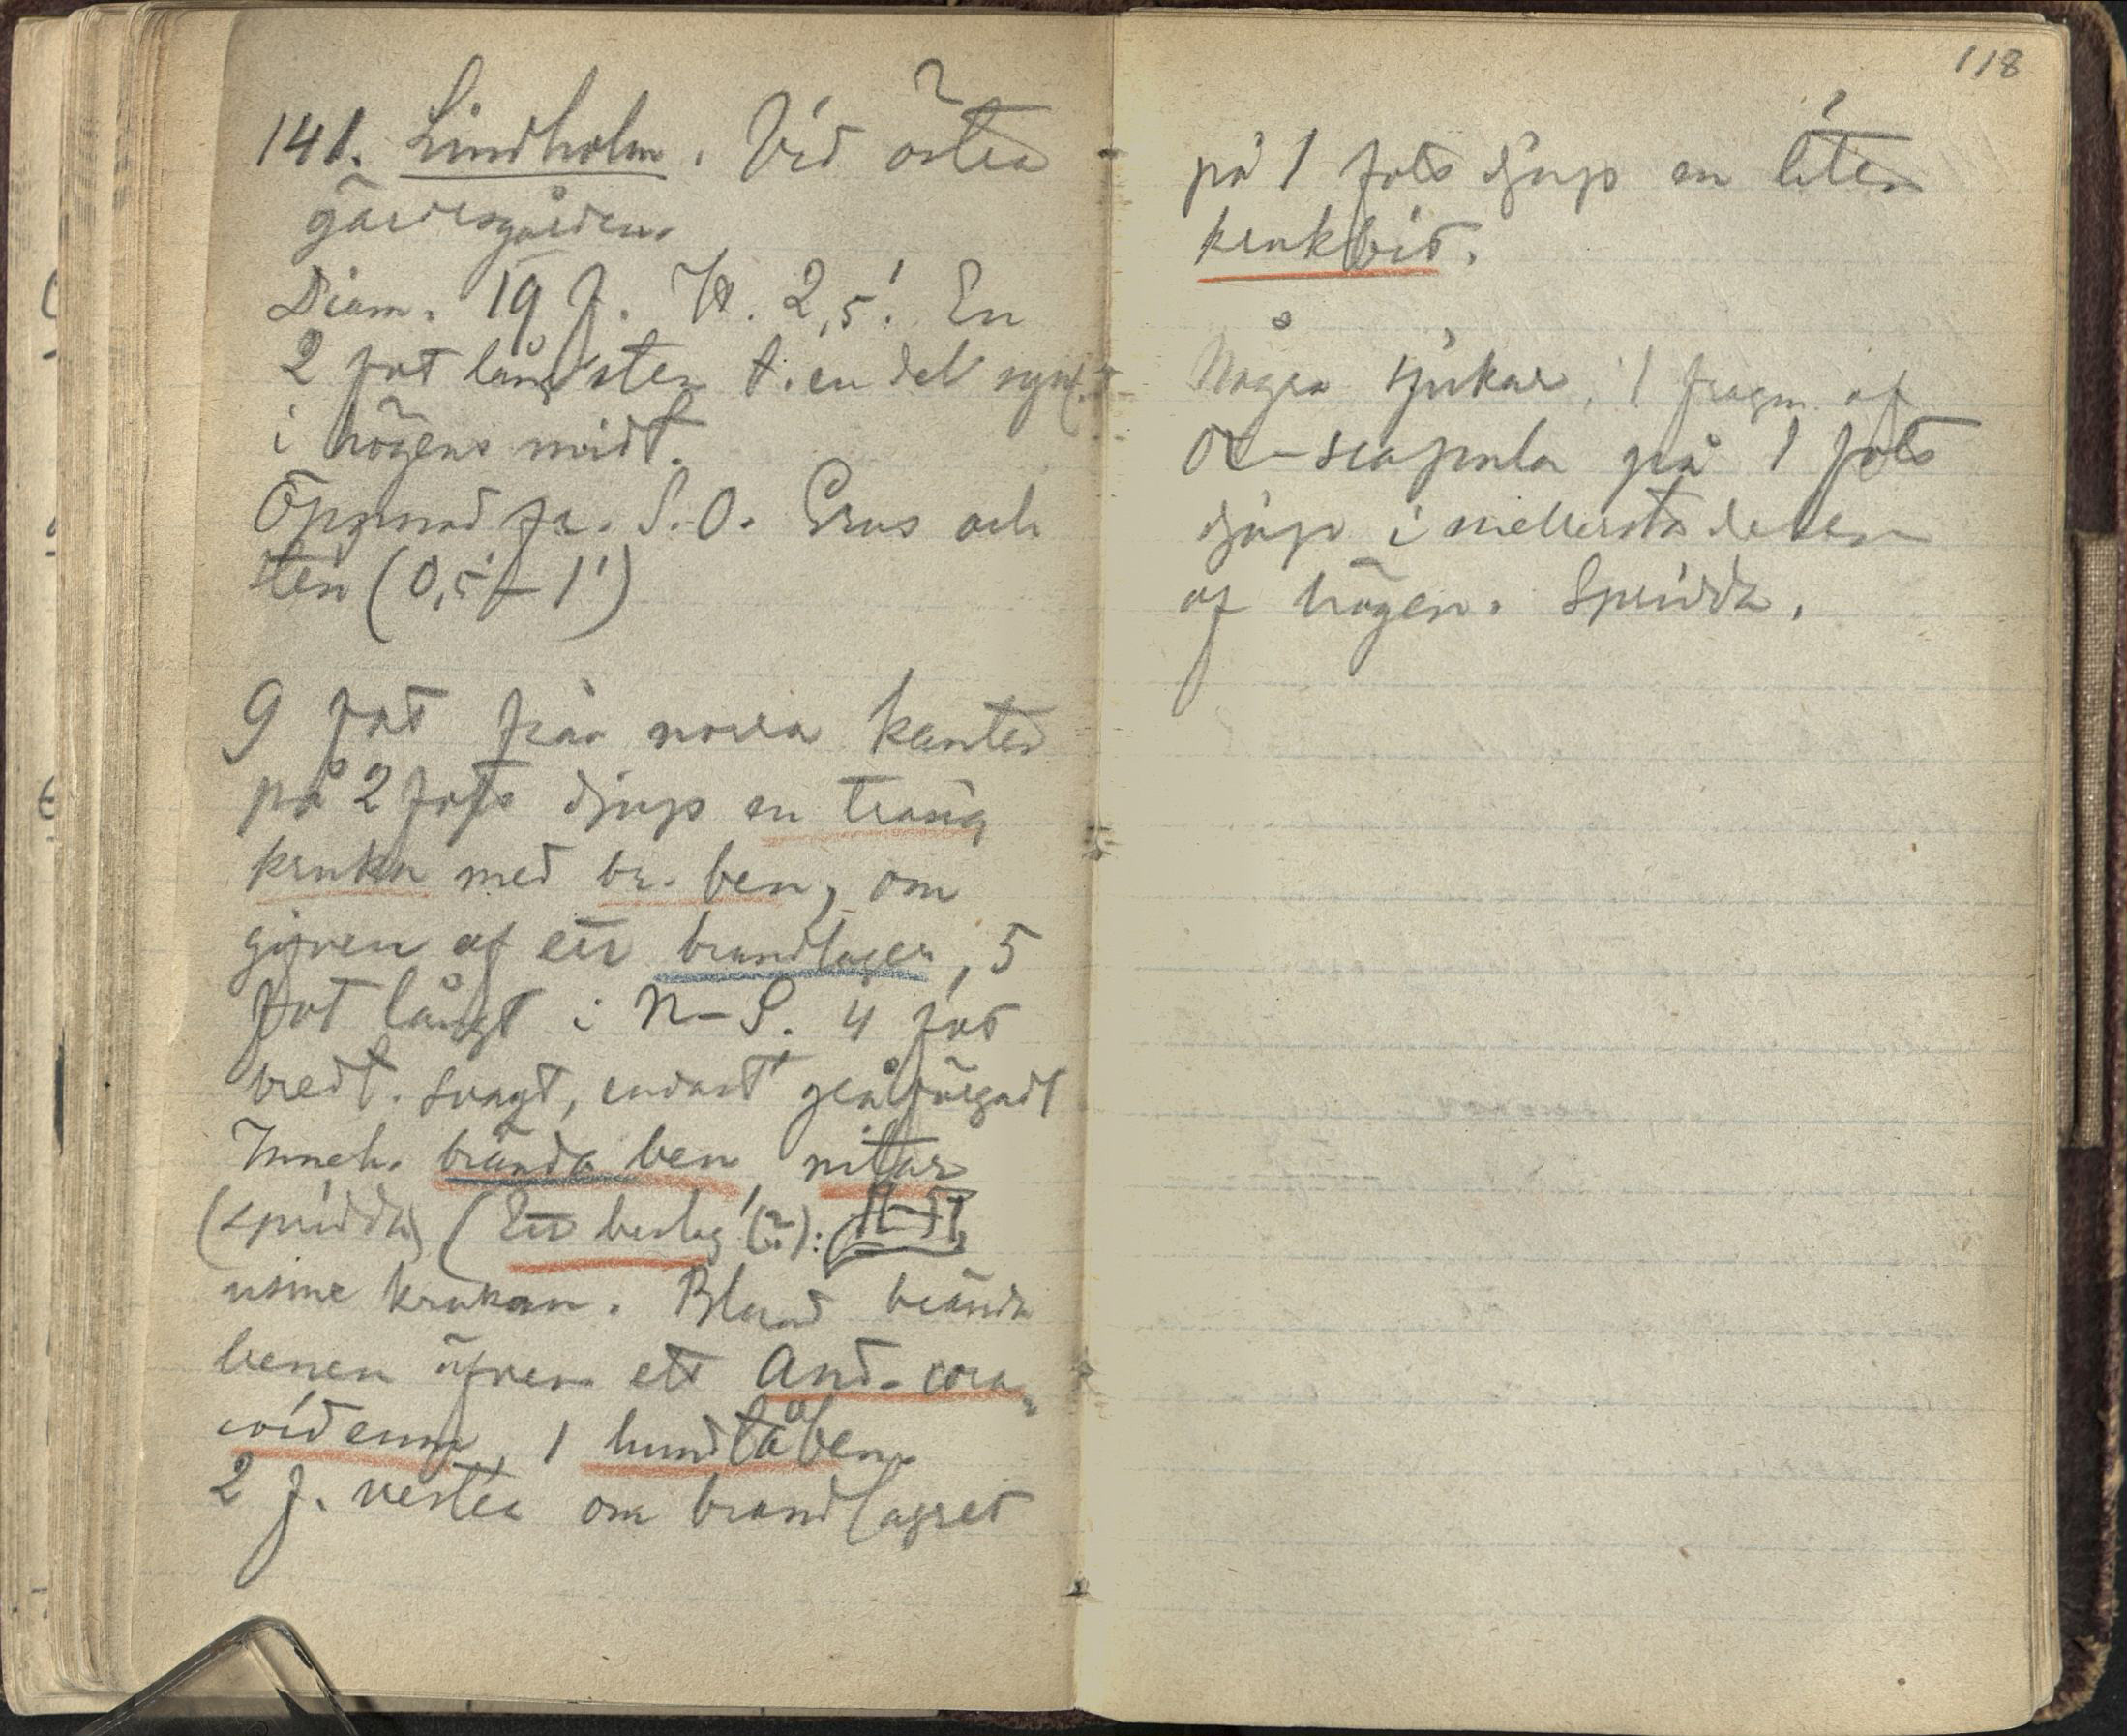 141. Lindholm. Vid östra
gärdesgården.
Diam. 19 f. H. 2,5'. En
2 fot lång sten t. en del synl.
i högens midt.
Öppnad fr. S.O. Grus och
sten (0,5'–1')
9 fot från norra kanten
på 2 fots djup en trasig
kruka med br. ben, om
gifven af ett brandlager, 5
fot långt i N–S. 4 fot
bredt. Svagt, endast gråfärgadt
Inneh. brända ben nitar
(spridda) (Ett beslag (?):
utme krukan. Bland brända
benen äfven ett And-cora-
coideum, 1 hundtåben.
2 f. vester om brandlagret
118
på 1 fots djup en liten
krukbit.
Några sjukar, 1 fragm. af
ox-scapula på 1 fots
djup i mellersta delen
af högen. Spridda.